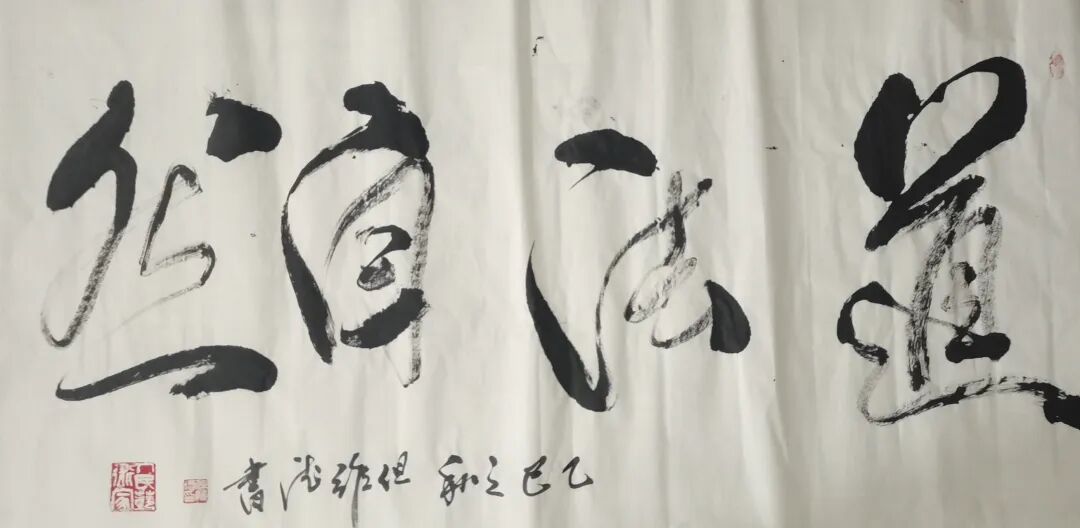 道法自然
乙巳之秋 但维 书